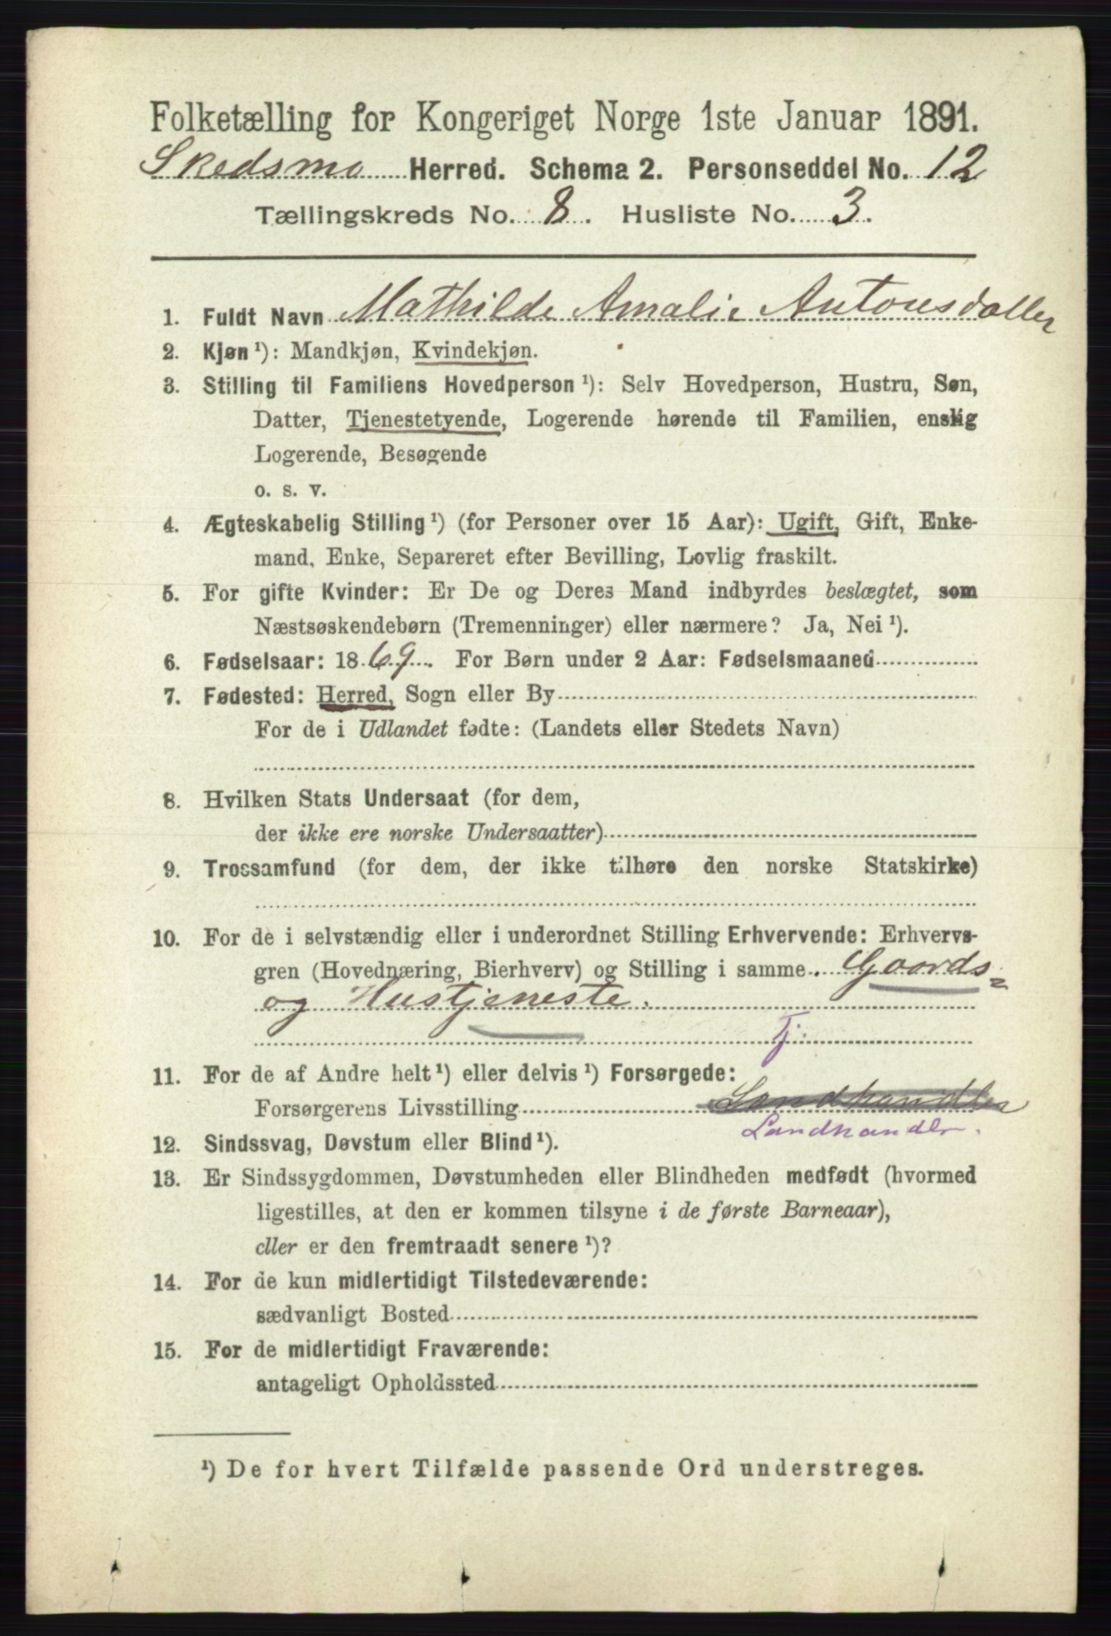 Folketælling for Kongeriget Norge 1ste Januar 1891.
Skedsmo Herred. Schema 2. Personseddel No. 12
Tællingskreds No. 8. Husliste No. 3.
1. Fuldt Navn Mathilde Amalie Antonsdatter
2. Kjøn ¹): Mandkjøn, Kvindekjøn.
3. Stilling til Familiens Hovedperson ¹): Selv Hovedperson, Hustru, Søn,
Datter, Tjenestetyende, Logerende hørende til Familien, enslig
Logerende, Besøgende
o. s. v.
4. Ægteskabelig Stilling ¹) (for Personer over 15 Aar): Ugift, Gift, Enke-
mand, Enke, Separeret efter Bevilling, Lovlig fraskilt.
5. For gifte Kvinder: Er De og Deres Mand indbyrdes beslægtet, som
Næstsøskendebørn (Tremenninger) eller nærmere? Ja, Nei ¹).
6. Fødselsaar: 1869. For Børn under 2 Aar: Fødselsmaaned
7. Fødested: Herred, Sogn eller By
For de i Udlandet fødte: (Landets eller Stedets Navn)
8. Hvilken Stats Undersaat (for dem,
der ikke ere norske Undersaatter)
9. Trossamfund (for dem, der ikke tilhøre den norske Statskirke)
10. For de i selvstændig eller i underordnet Stilling Erhvervende: Erhvervs-
gren (Hovednæring, Bierhverv) og Stilling i samme. Gaards-
og Hustjeneste.
Tj.
11. For de af Andre helt ¹) eller delvis ¹) Forsørgede:
Forsørgerens Livsstilling Landhandler
Landhandler.
12. Sindssvag, Døvstum eller Blind ¹).
13. Er Sindssygdommen, Døvstumheden eller Blindheden medfødt (hvormed
ligestilles, at den er kommen tilsyne i de første Barneaar),
eller er den fremtraadt senere ¹)?
14. For de kun midlertidigt Tilstedeværende:
sædvanligt Bosted
15. For de midlertidigt Fraværende:
antageligt Opholdssted
¹) De for hvert Tilfælde passende Ord understreges.